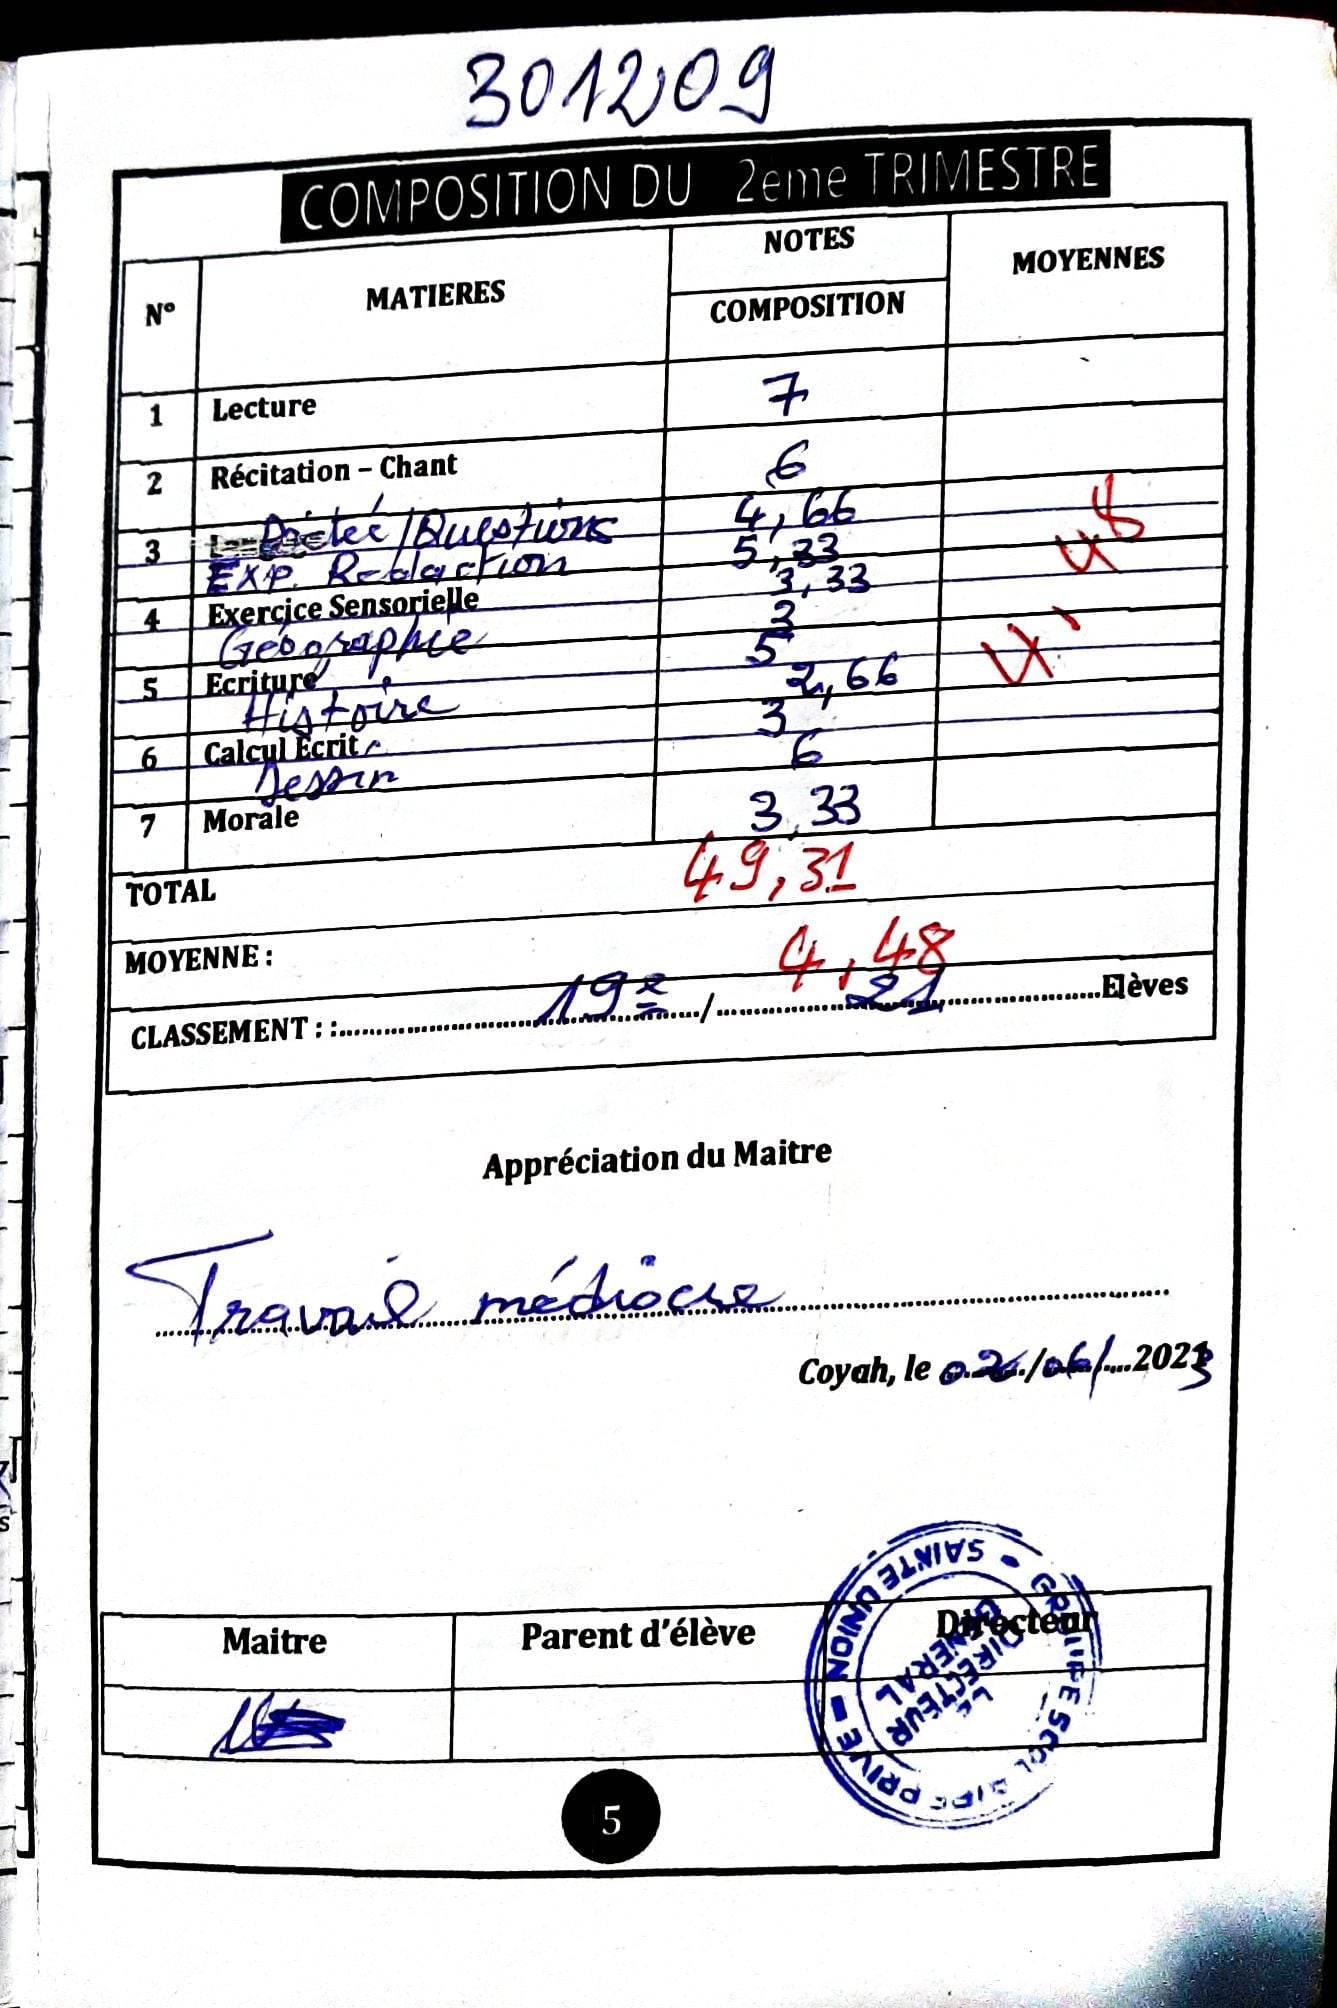 301209
COMPOSITION DU 2eme TRIMESTRE
N° MATIERES NOTES MOYENNES
COMPOSITION
1 Lecture 7
2 Récitation – Chant 6
3 Dictée/Questions 4,66
Exp. Redaction 5,33
4 Exercice Sensorielle 3,33
Géographie 3
5 Ecriture 5
Histoire 2,66
6 Calcul Ecrit 3
Dessin 6
7 Morale 3,33
TOTAL 49,31
MOYENNE : 4,48
CLASSEMENT : : 19e / 21 Elèves
Appréciation du Maitre
Travail médiocre
Coyah, le 02/06/2023
Maitre Parent d'élève Directeur
GROUPE SCOLAIRE PRIVE – SAINTE UNION
LE DIRECTEUR GENERAL
5